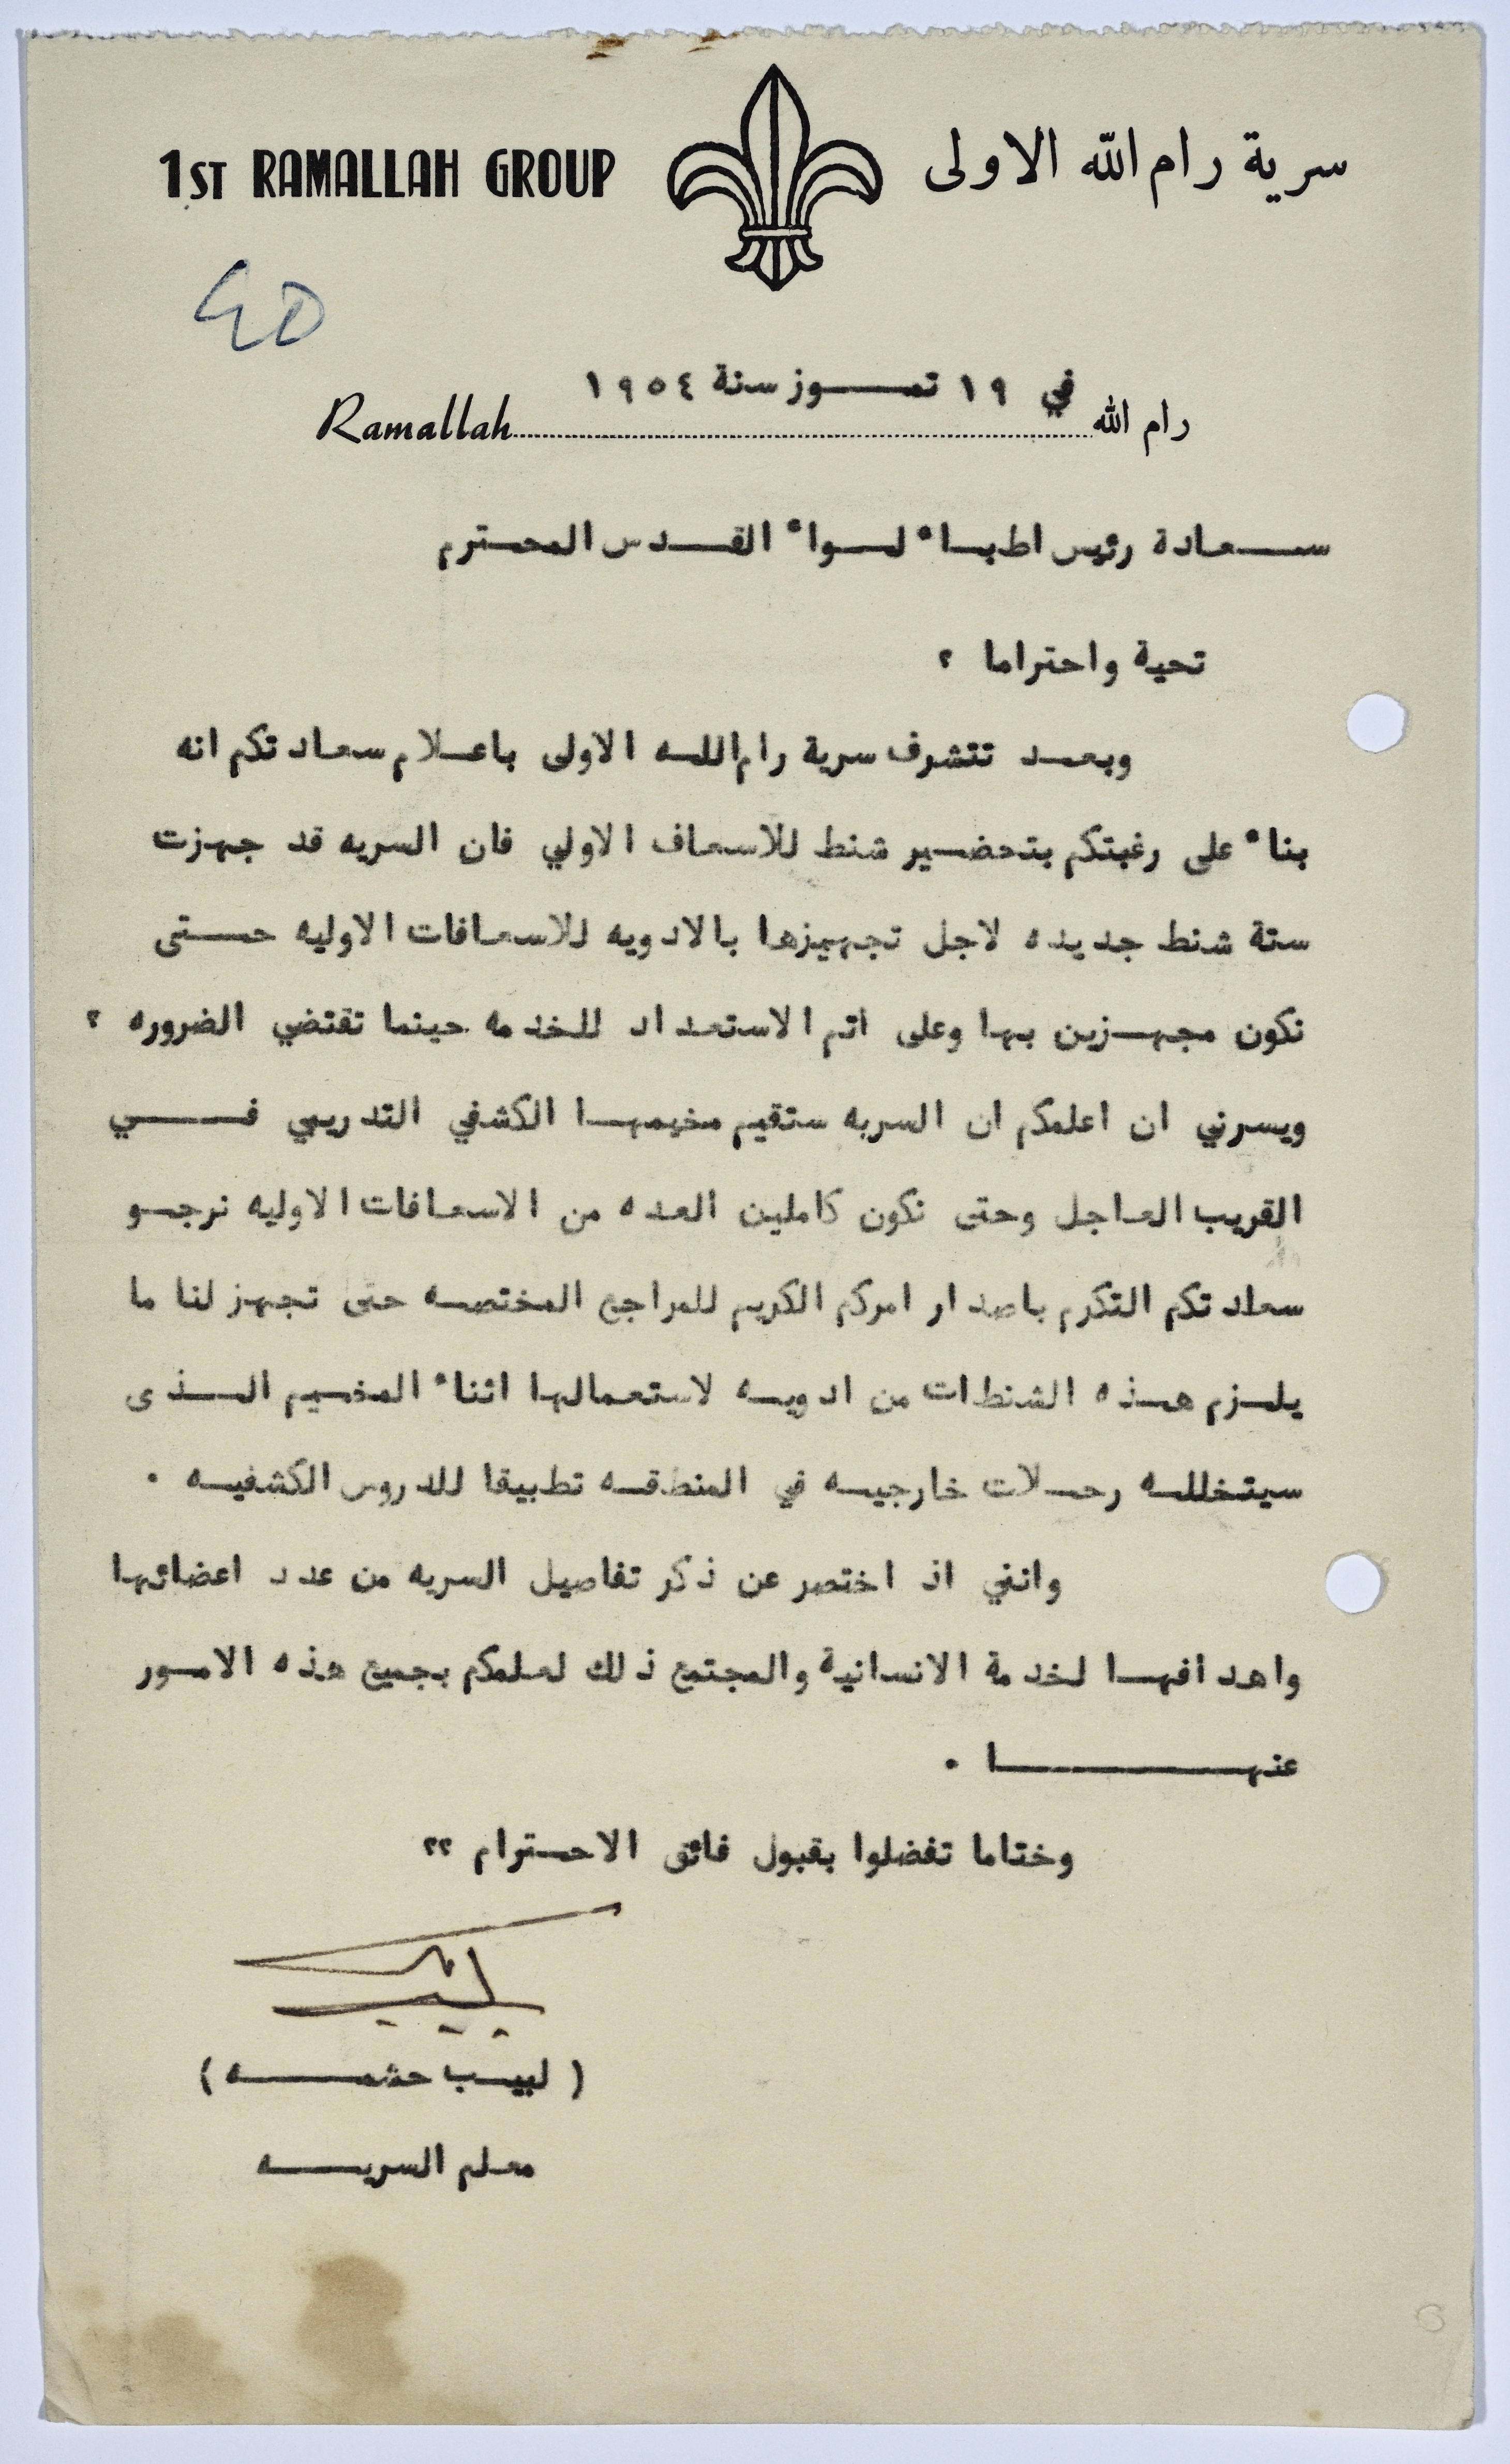 1ST RAMALLAH GROUP سرية رام الله الاولى
في ١٩ تمـــوز سنة ١٩٥٤
Ramallah رام الله
ســعادة رئيس اطبـاء لـواء القـدس المحـترم
تحية واحتراما ؟
وبعـد تتشرف سرية رام اللـه الاولى باعـلام سعادتكم انه
بناء على رغبتكم بتحضـير شنط للاسعاف الاولي فان السريه قد جهزت
ستة شنط جديده لاجل تجهيزها بالادويه للاسعافات الاوليه حــتى
نكون مجهـزين بها وعلى اتم الاستعداد للخدمه حينما تقتضي الضروره ؟
ويسرني ان اعلمكم ان السريه ستقيم مخيمهـا الكشفي التدريبي فـــي
القريب العاجل وحتى نكون كاملين العده من الاسعافات الاوليه نرجـو
سعادتكم التكرم باصدار امركم الكريم للمراجع المختصـه حتى تجهز لنا ما
يلـزم هـذه الشنطات من ادويـه لاستعمالها اثناء المخـيم الــذى
سيتخللـه رحـلات خارجيـه في المنطقـه تطبيقا للدروس الكشفيـه .
وانني اذ اختصر عن ذكر تفاصيل السريه من عدد اعضائها
واهدافهـا لخدمة الانسانية والمجتمع ذلك لعلمكم بجميع هذه الامـور
عنهــــــا .
وختاما تفضلوا بقبول فائق الاحـترام ؟؟
( لبيـب حشمــــه )
معلم السريـــه